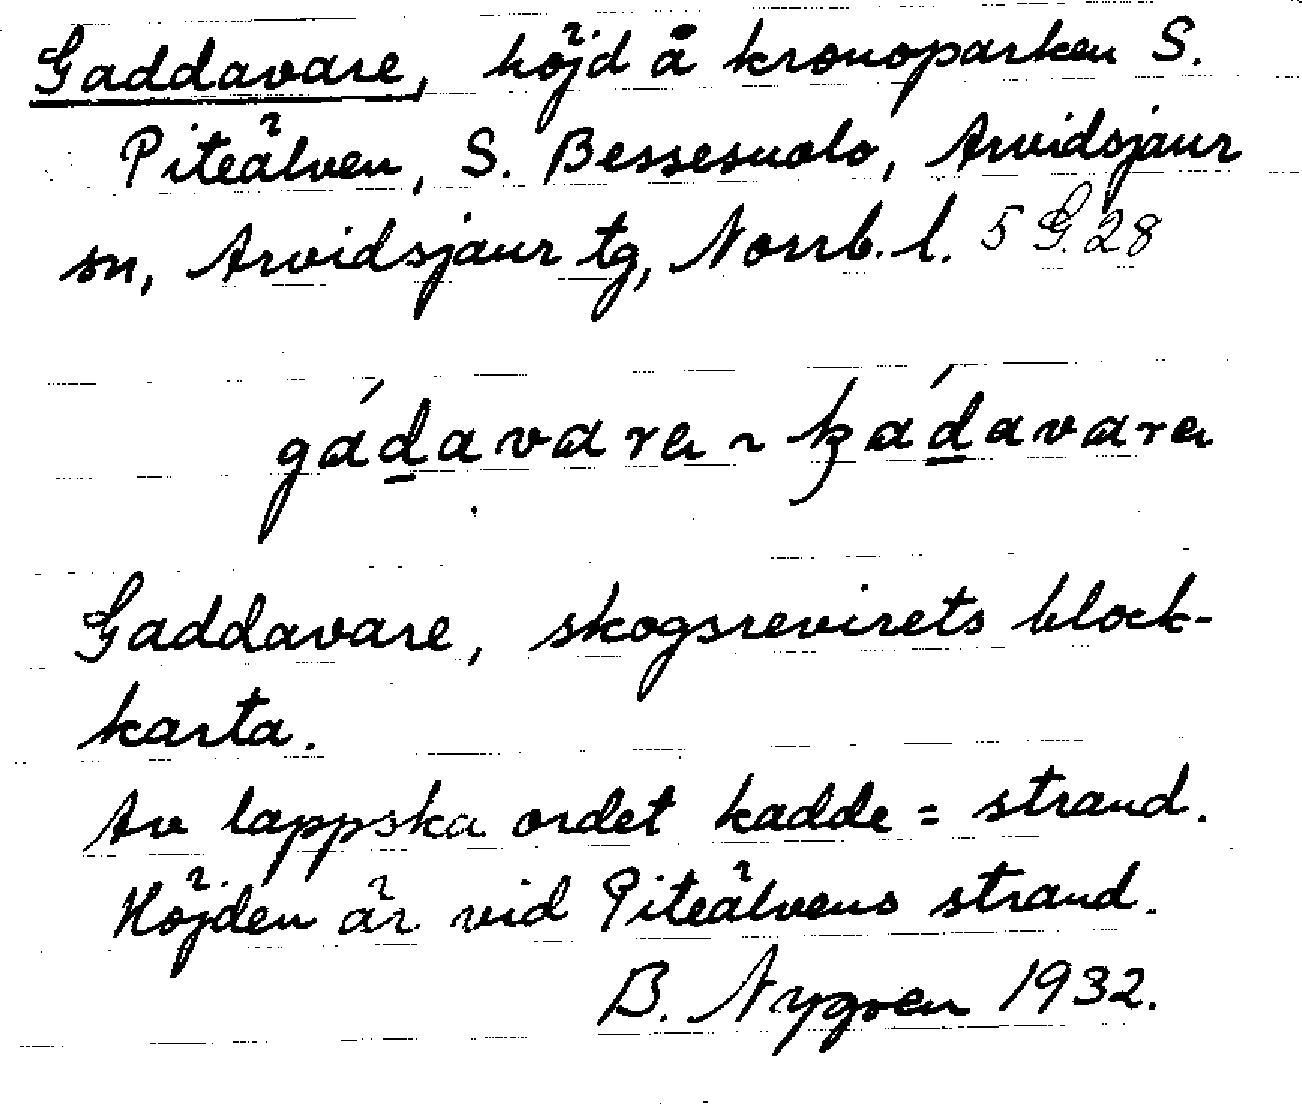 Gaddavare, höjd å kronoparken S.
Piteälven, S. Bessesuolo, Arvidsjaur
sn, Arvidsjaur tg, Norrb. l. 5 G. 28
gád̲avara ~ kád̲avara
Gaddavare, skogsrevirets block-
karta.
Av lappska ordet kadde = strand.
Höjden är vid Piteälvens strand.
B. Nygren 1932.